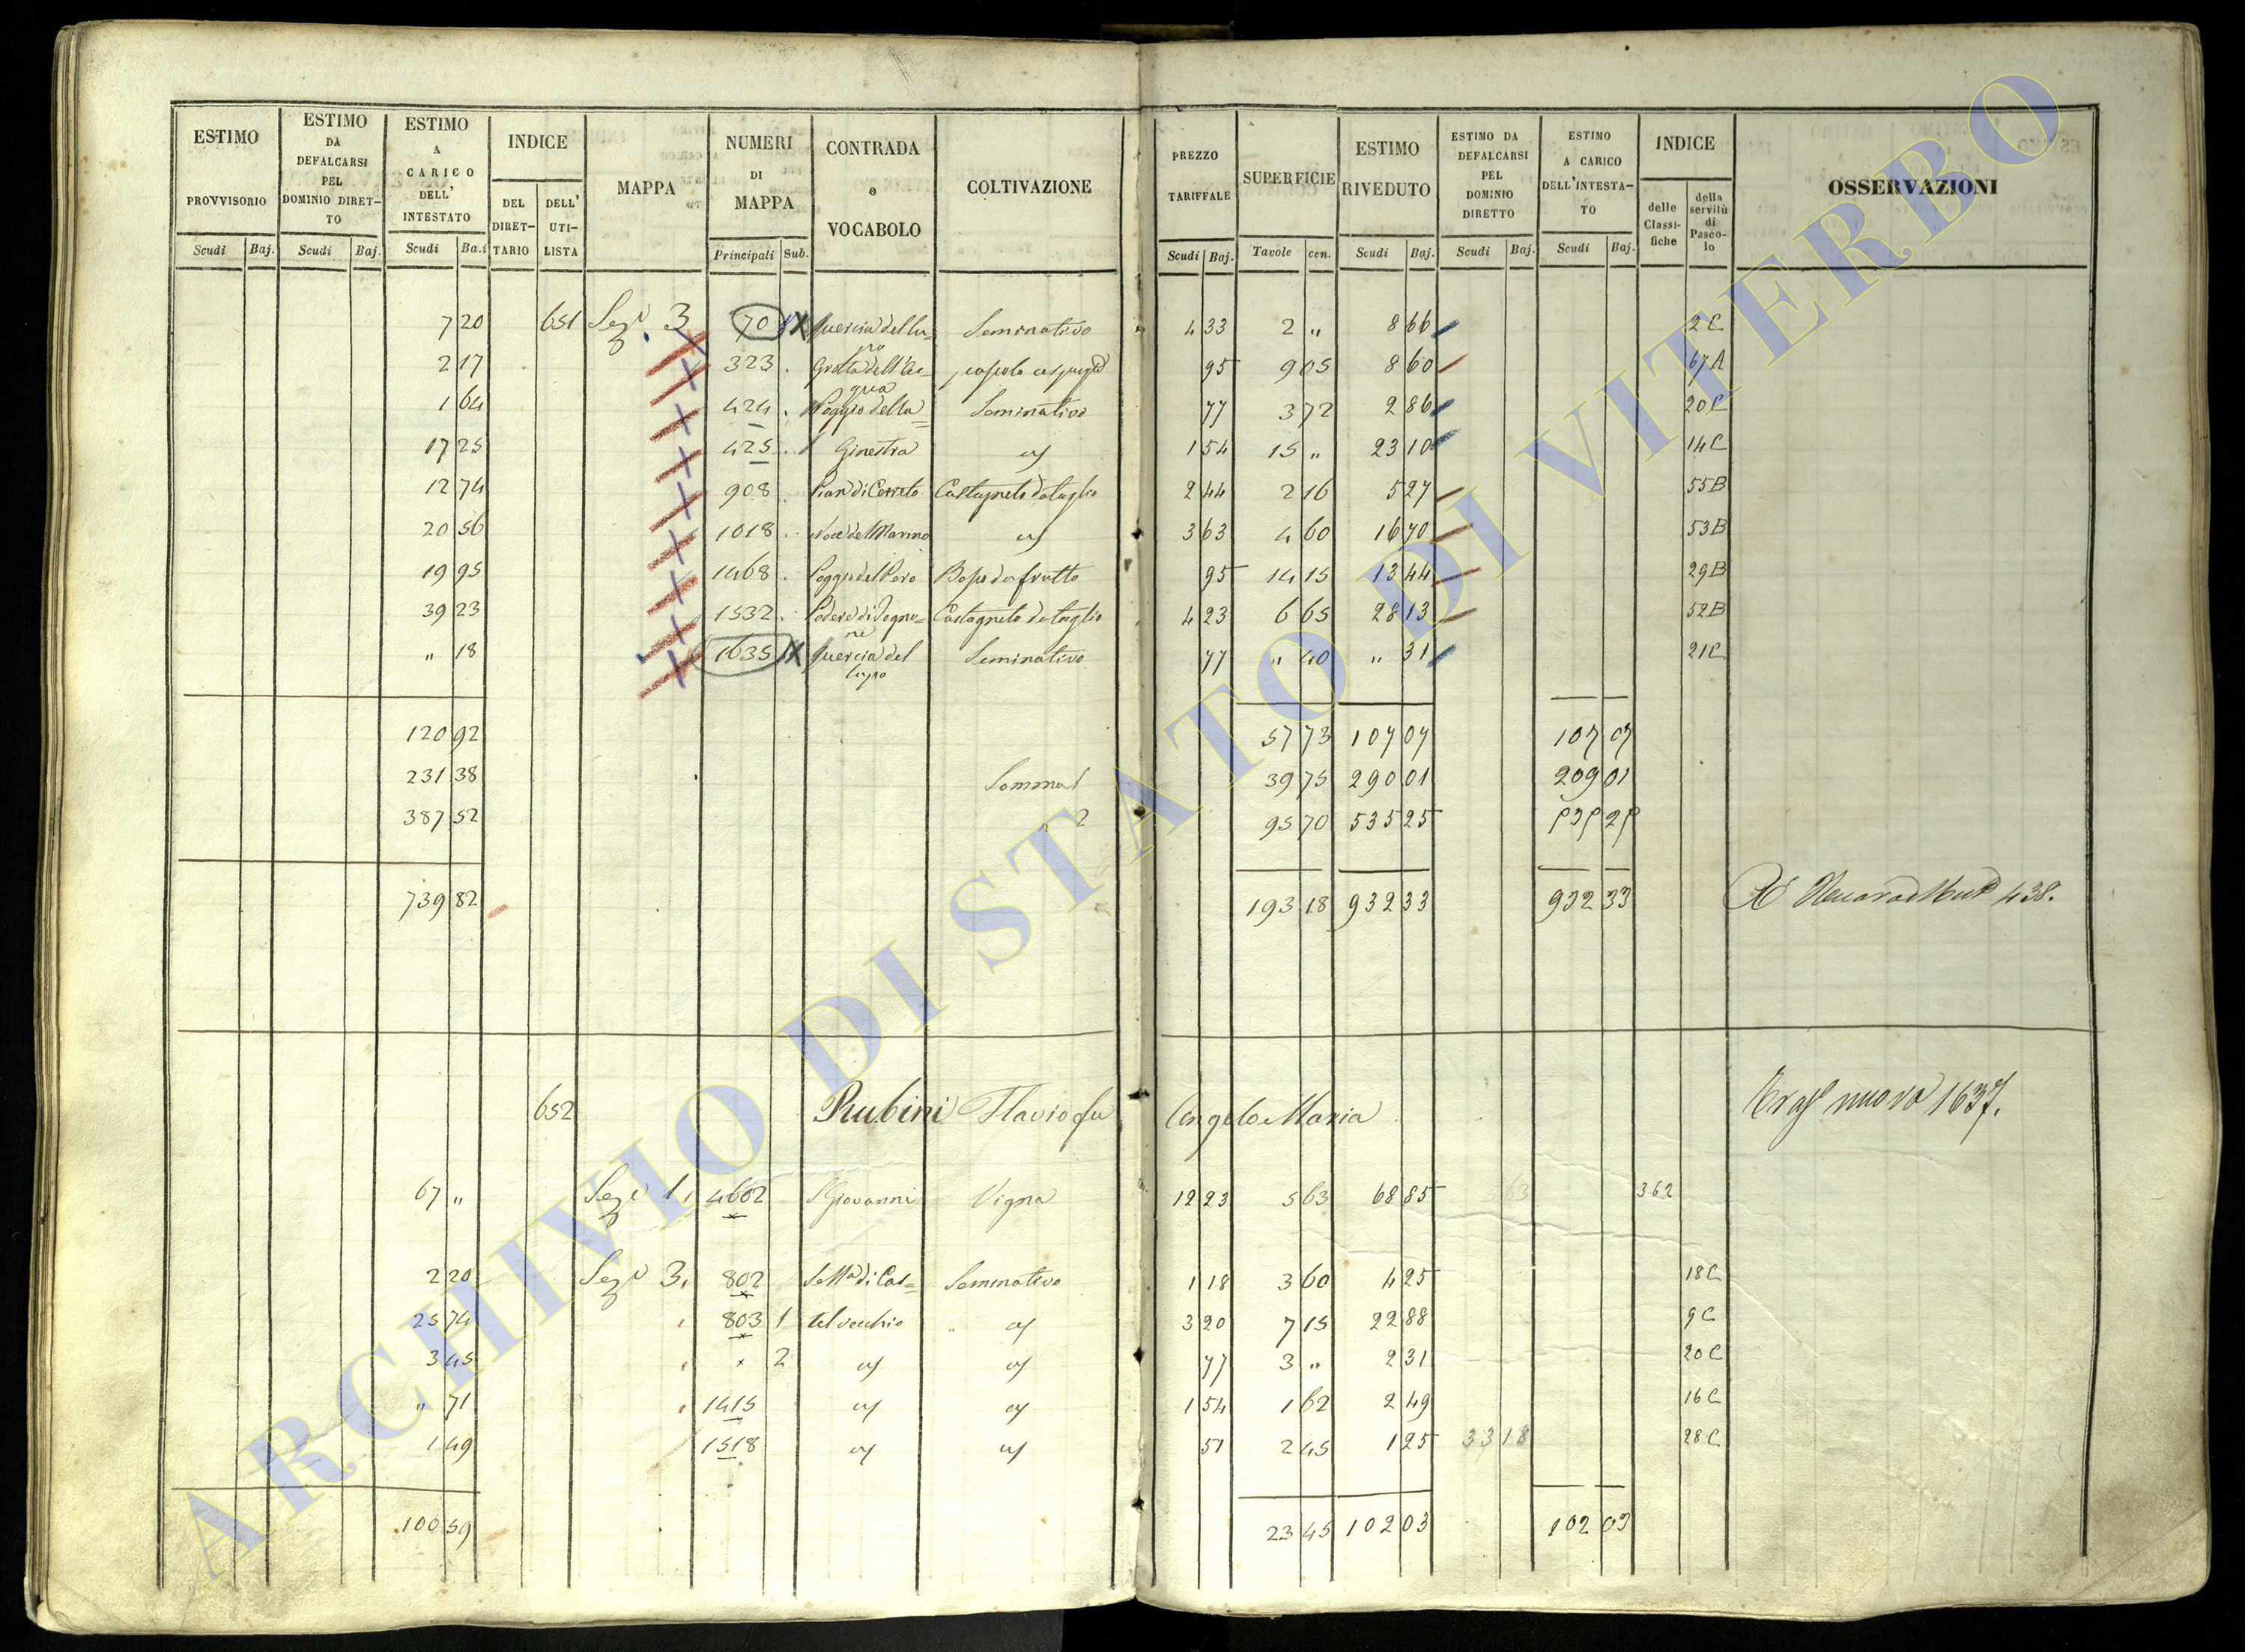 ESTIMO PROVVISORIO | ESTIMO DA DEFALCARSI PEL DOMINIO DIRETTO | ESTIMO A CARICO DELL' INTESTATO | INDICE | MAPPA | NUMERI DI MAPPA | CONTRADA o VOCABOLO | COLTIVAZIONE | PREZZO TARIFFALE | SUPERFICIE | ESTIMO RIVEDUTO | ESTIMO DA DEFALCARSI PEL DOMINIO DIRETTO | ESTIMO A CARICO DELL'INTESTATO | INDICE | OSSERVAZIONI
DEL DIRETTARIO | DELL' UTILISTA | delle Classifiche | della servitù di Pascolo
Scudi Baj. | Scudi Baj. | Scudi Ba.i | Principali Sub. | Scudi Baj. | Tavole cen. | Scudi Baj. | Scudi Baj. | Scudi Baj.
7 20 651 Sez.e 3 70 Quercia del lupo Seminativo 4 33 2 " 8 66 2C
2 17 323 Grotta dell'Acqua pascolo cespugl. 95 9 05 8 60 67A
1 64 424 Poggio della Seminativo 77 3 72 2 86 20C
17 25 425 Ginestra 1 54 15 " 23 10 14C
12 74 908 Pian di Cerreto Castagneto da taglio 2 44 2 16 5 27 55B
20 56 1018 Noce del Marino 3 63 4 60 16 70 53B
19 95 1468 95 14 15 13 44 29B
39 23 1532 Castagneto da taglio 4 23 6 65 28 13 52B
" 18 1635 Quercia del lupo Seminativo 77 " 40 " 31 21C
120 92 57 73 107 07 107 07
231 38 Somma 1 39 75 290 01 209 01
387 52 2 95 70 535 25 535 25
739 82 193 18 932 33 932 33 438.
652 Rubini Flavio fu Angelo Maria nuova 1637.
67 " Sez.e 1 4602 S Giovanni Vigna 12 23 5 63 68 85 5 63 362
2 20 Sez.e 3 802 Sotto di Cas= Seminativo 1 18 3 60 4 25 18C
25 74 803 1 tel vecchio 3 20 7 15 22 88 9C
3 45 2 77 3 " 2 31 20C
" 71 1415 1 54 1 62 2 49 16C
1 49 1518 51 2 45 1 25 33 18 28C
100 59 23 45 102 03 102 03
ARCHIVIO DI STATO DI VITERBO